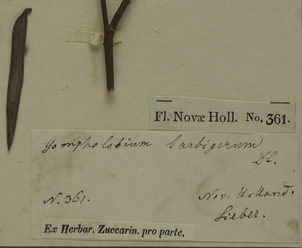 Fl. Novæ Holl. No. 361.
Gompholobium barbigerum
DC.
N. 361.
Nov. Holland.
Sieber.
Ex Herbar. Zuccarin. pro parte.